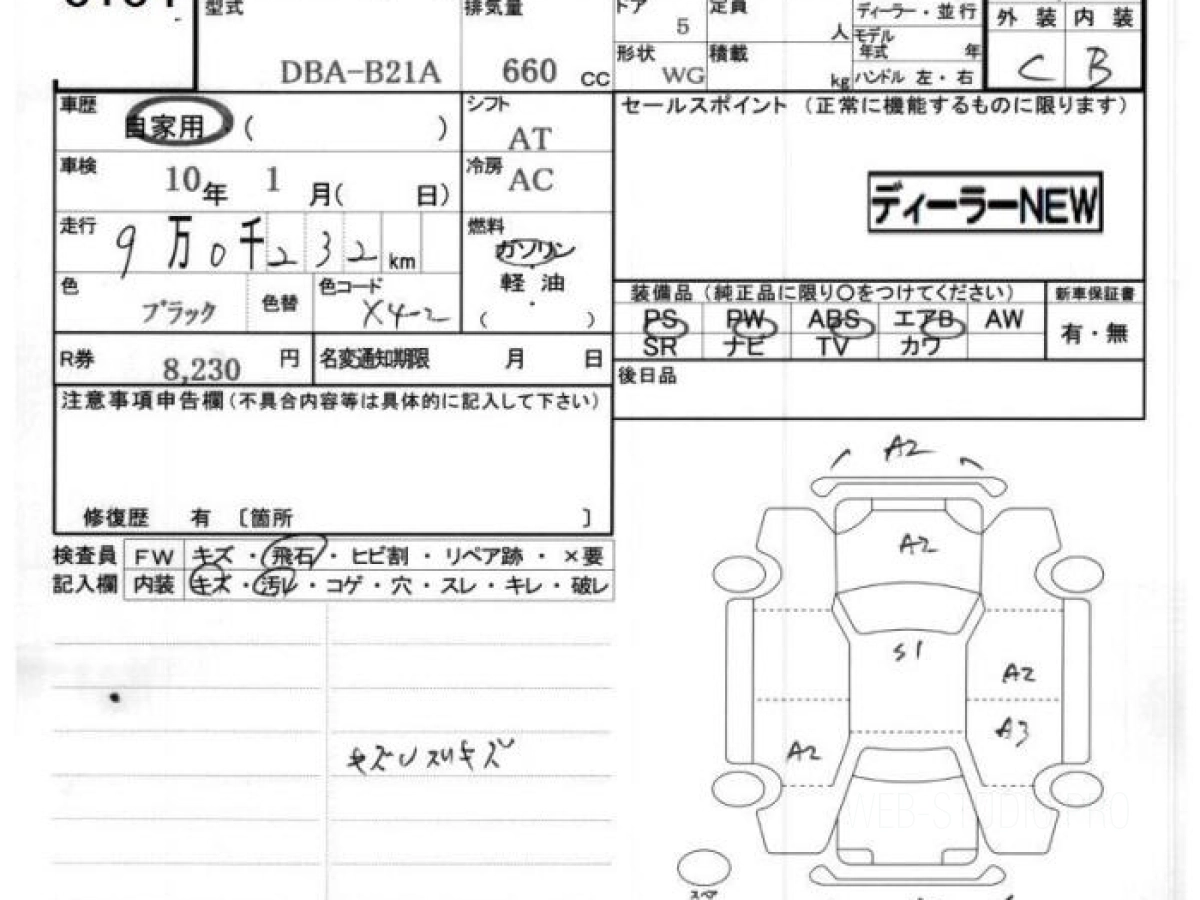 型式 排気量 ドア 定員 ディーラー・並行
DBA-B21A 660 CC 5 人 モデル年式 年 外装 内装
形状 WG 積載 kg ハンドル 左・右 C B
車歴 自家用・( ) シフト AT
セールスポイント (正常に機能するものに限ります)
車検 10年 1月( 日) 冷房 AC
ディーラーNEW
走行 9万0千232km 燃料 ガソリン
軽油
( )
色 ブラック 色替 色コード X42
装備品(純正品に限り〇をつけてください) 新車保証書
PS PW ABS エアB AW 有・無
SR ナビ TV カワ
R券 8,230 円 名変通知期限 月 日
後日品
注意事項申告欄(不具合内容等は具体的に記入して下さい)
修復歴 有 〔箇所 〕
検査員 FW キズ・飛石・ヒビ割・リペア跡・×要
記入欄 内装 キズ・汚レ・コゲ・穴・スレ・キレ・破レ
A2
A2
S1
A2
A3
A2
WEB-STUDIO PRO
スペア